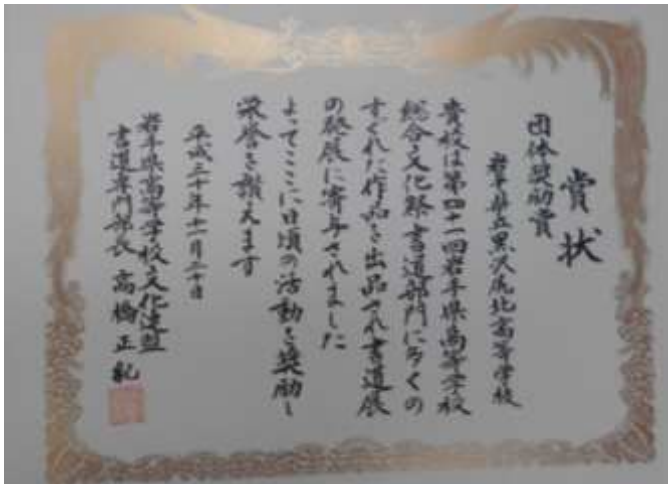 賞状
団体奨励賞
岩手県立黒沢尻北高等学校
貴校は第四十一回岩手県高等学校
総合文化祭書道部門に多くの
すぐれた作品を出品され書道展
の発展に寄与されました
よってここに日頃の活動を奨励し
栄誉を讃えます
平成三十年十一月三十日
岩手県高等学校文化連盟
書道専門部長 高橋正紀